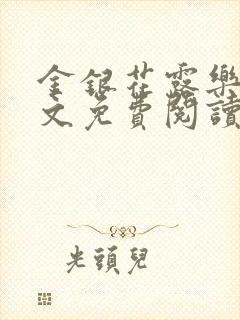 金銀花露樂
文免費閱讀
光頭兒